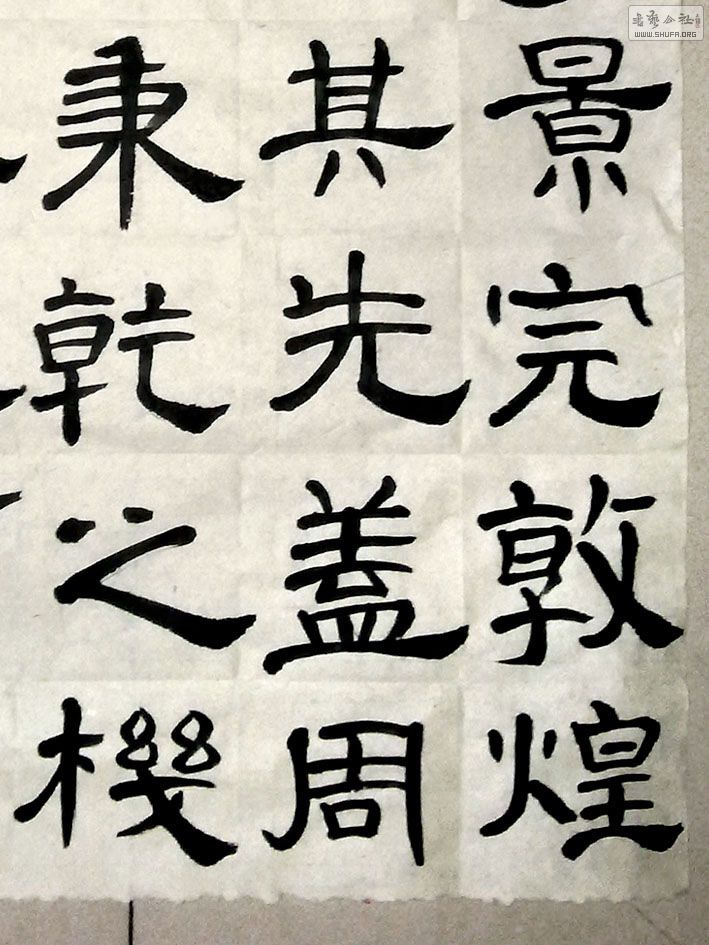 景完敦煌
其先盖周
秉乾之機
書藝公社
WWW.SHUFA.ORG